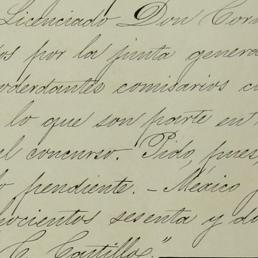 Licenciado Don Corn
os por la junta genera
oderdantes comisarios c
lo que son parte en
el concurso. Pido, pues,
o pendiente. - México
hocientos sesenta y do
C. Castillo."